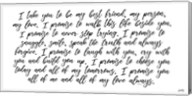 I take you to be my best friend, my person,
my love, I promise to walk this life beside you,
I promise to never stop trying, I promise to
snuggle, smile, speak the truth and always
forgive, I promise to laugh with you, cry with
you and build you up, I promise to choose you
today and all of my tomorrows, I promise you
all of me and all of my love always.